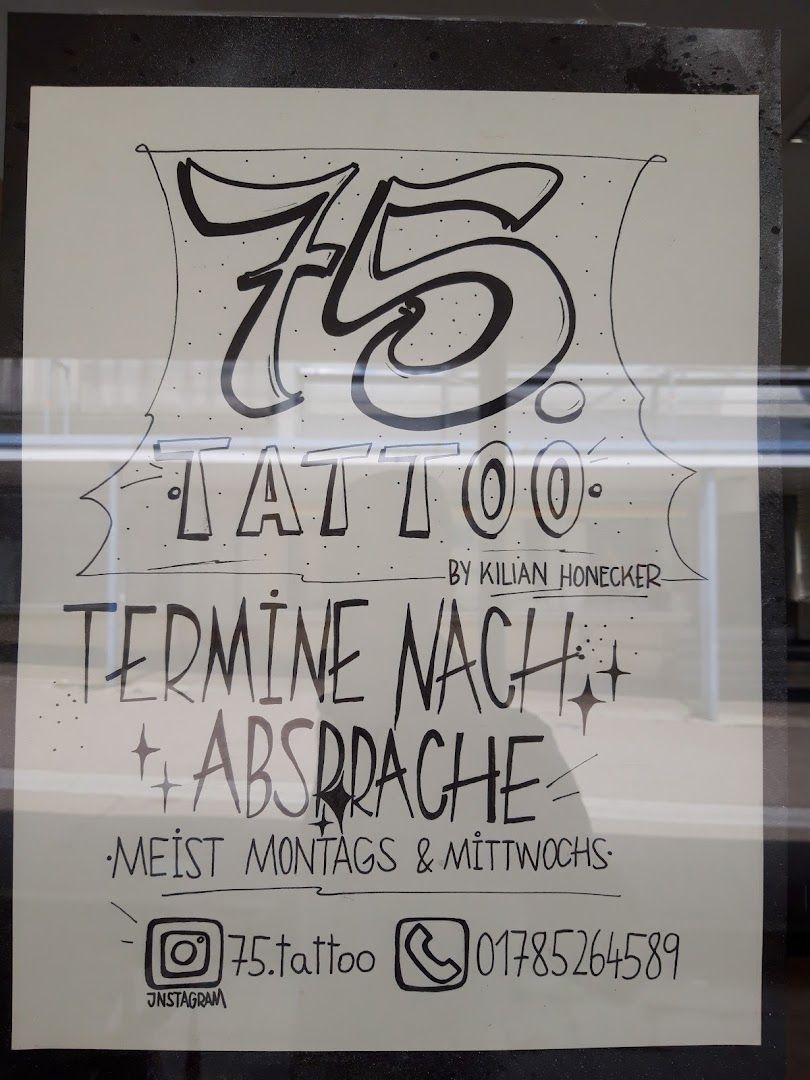 75.
TATTOO
BY KILIAN HONECKER
TERMINE NACH
ABSPRACHE
MEIST MONTAGS & MITTWOCHS
75.tattoo 01785264589
INSTAGRAM